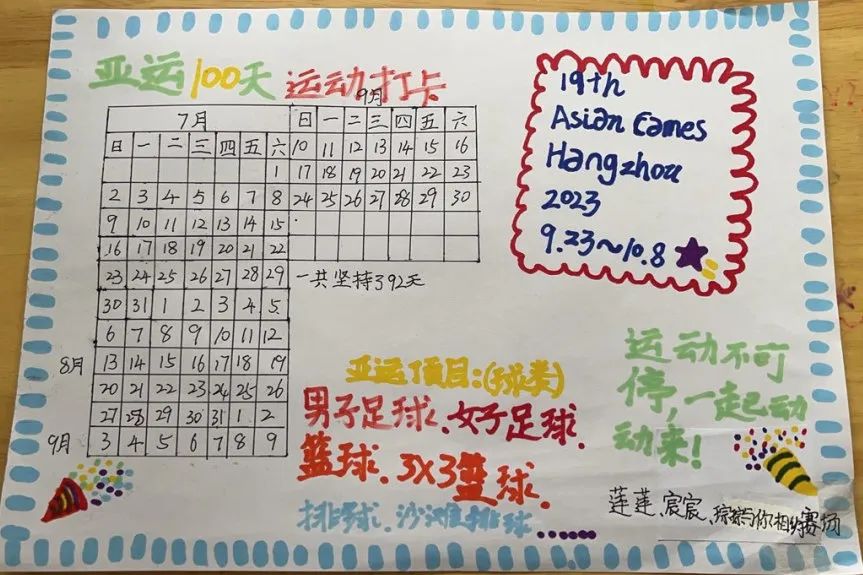 亚运100天 运动打卡
7月
日 一 二 三 四 五 六
1
2 3 4 5 6 7 8
9 10 11 12 13 14 15
16 17 18 19 20 21 22
23 24 25 26 27 28 29
30 31 1 2 3 4 5
6 7 8 9 10 11 12
8月 13 14 15 16 17 18 19
20 21 22 23 24 25 26
27 28 29 30 31 1 2
9月 3 4 5 6 7 8 9
9月
日 一 二 三 四 五 六
10 11 12 13 14 15 16
17 18 19 20 21 22 23
24 25 26 27 28 29 30
一共坚持了92天
19th
Asian Games
Hangzhou
2023
9.23~10.8
亚运项目:(球类)
男子足球、女子足球、
篮球、3X3篮球、
排球、沙滩排球……
运动不可
停,一起动
动来!
莲莲、宸宸、琮琮与你相约赛场